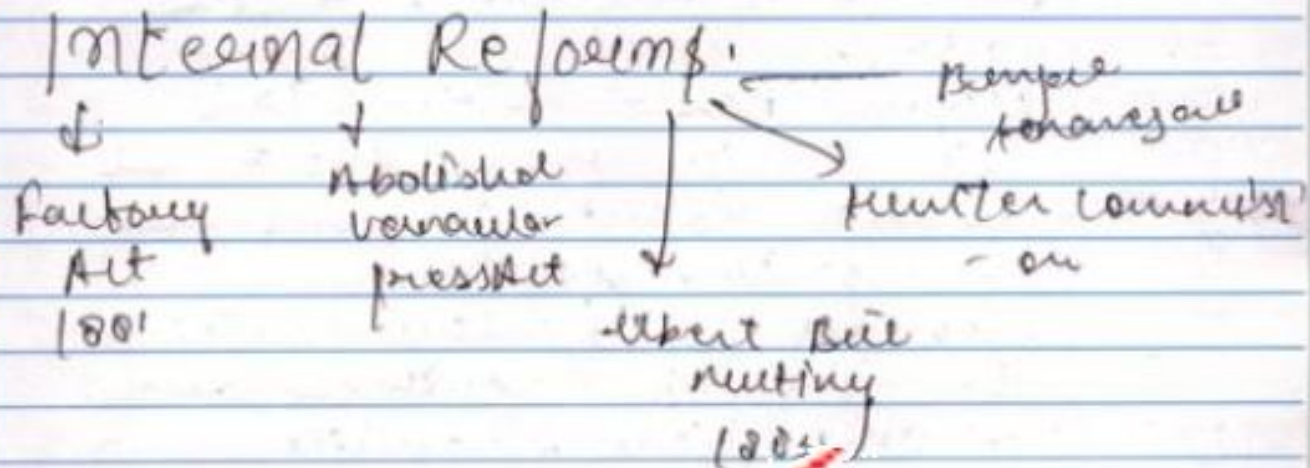 Internal Reforms.
Factory
Act
1881
Abolished
vernacular
pressAct
Ilbert Bill
mutiny
Hunter Commissi
- on